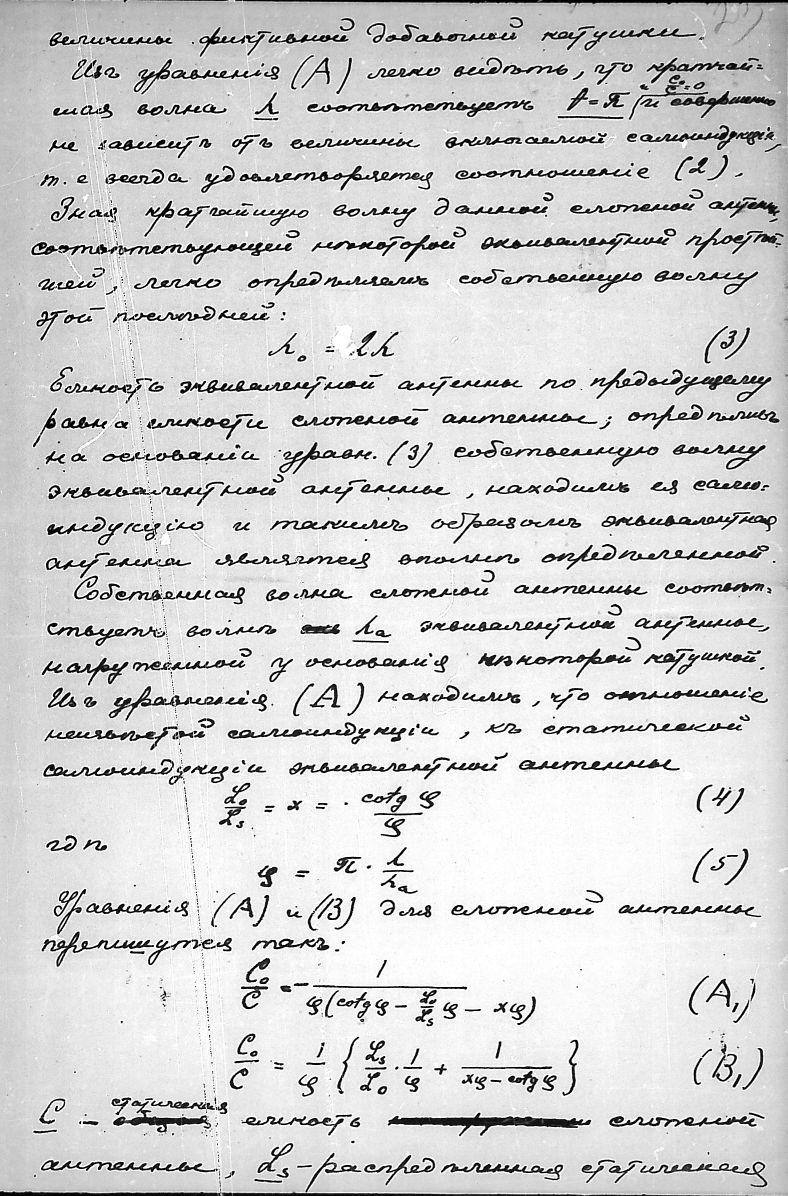 величины фиктивной добавочной катушки.
Изъ уравненія (A) легко видѣть, что кратчай=
шая волна λ соотвѣтствуетъ t = π (и C₀/C = 0 и совершенно
не зависитъ отъ величины включаемой самоиндукціи,
т. е всегда удовлетворяется соотношеніе (2).
Зная кратчайшую волну данной сложной антенны,
соотвѣтствующей нѣкоторой эквивалентной простѣй=
шей, легко опредѣляемъ собственную волну
этой послѣдней:
λ₀ = 2λ (3)
Емкость эквивалентной антенны по предыдущему
равна емкости сложной антенны; опредѣливъ
на основаніи уравн. (3) собственную волну
эквивалентной антенны, находимъ ея само=
индукцію и такимъ образомъ эквивалентная
антенна является вполнѣ опредѣленной.
Собственная волна сложной антенны соотвѣт=
ствуетъ волнѣ λₐ эквивалентной антенны,
нагруженной у основанія нѣкоторой катушкой.
Изъ уравненія (A) находимъ, что отношеніе
неизвѣстой самоиндукціи, къ статической
самоиндукціи эквивалентной антенны
L₀/Lₛ = x = cotg φ/φ (4)
гдѣ
φ = π · λ/λₐ (5)
Уравненія (A) и (B) для сложной антенны
перепишутся такъ:
C₀/C = - 1/φ(cotg φ - L₀/Lₛ φ - xφ) (A₁)
C₀/C = 1/φ { Lₛ/L₀ · 1/φ + 1/xφ - cotg φ } (B₁)
C – статическая емкость сложной
антенны, Lₛ – распредѣленная статическая